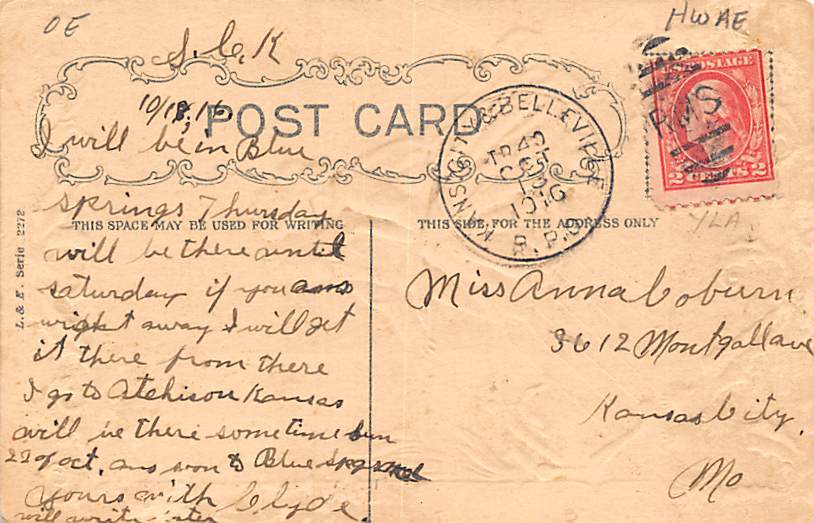 OE
HWAE
S. C. K
10/18, 16
POST CARD
I will be in Blue
Springs Thursday
THIS SPACE MAY BE USED FOR WRITING
will be there until
Saturday if you ans
wright away I will get
it there from there
I go to Atchison Kansas
will be there sometime Sun
22 of oct. ans soon to Blue Spgs
Yours with Clyde
will write later
L. & E. Serie 2272
THIS SIDE FOR THE ADDRESS ONLY
CITY & BELLEVILLE
TR 42
OCT
18
1916
R.P.O.
RMS
U.S. POSTAGE
2 CENTS 2
YLA
Miss Anna Coburn
3612 Montgall ave
Kansas City,
Mo